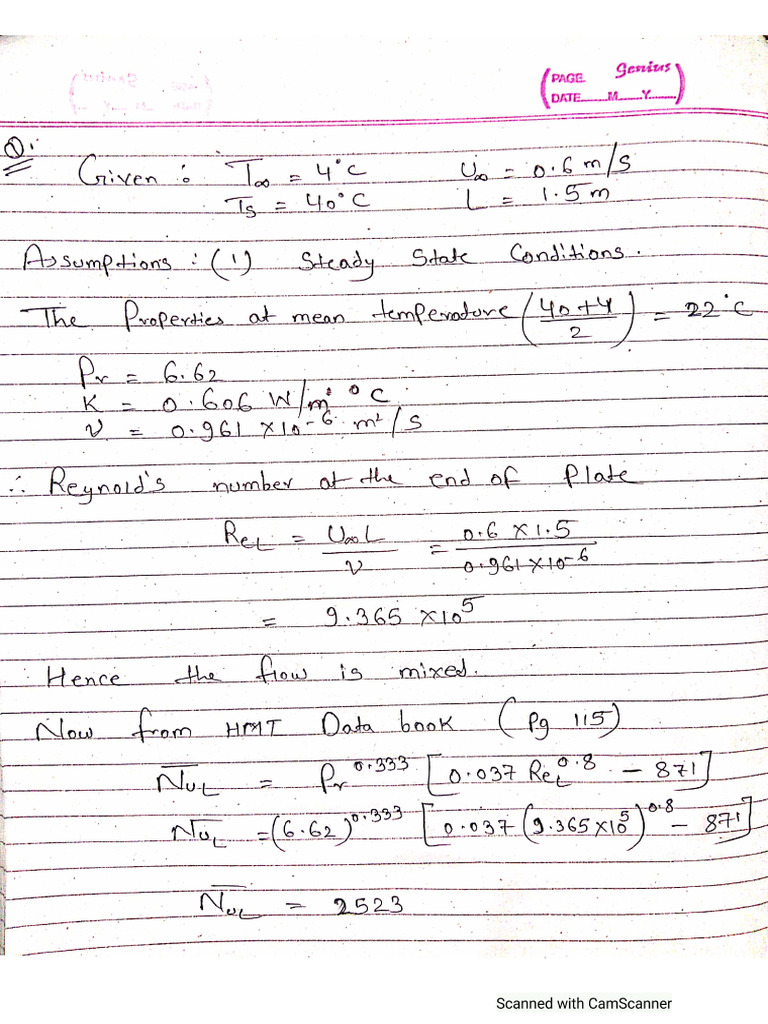 PAGE Genius
DATE M Y
Q.
Given : T∞ = 4°C U∞ = 0.6 m/s
Ts = 40°C L = 1.5 m
Assumptions : (1) Steady State Conditions.
The Properties at mean temperature (40+4/2) = 22°C
Pr = 6.62
K = 0.606 W/m °C
ν = 0.961 ×10-6 m²/s
∴ Reynold's number at the end of Plate
ReL = U∞L/ν = 0.6 × 1.5/0.961×10-6
= 9.365 ×10⁵
Hence the flow is mixed.
Now from HMT Data book (Pg 115)
N̅u̅L = Pr^0.333 [0.037 ReL^0.8 - 871]
N̅u̅L = (6.62)^0.333 [0.037 (9.365×10⁵)^0.8 - 871]
N̅u̅L = 2523
Scanned with CamScanner